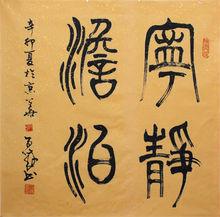 寧靜
澹泊
辛卯夏於京華